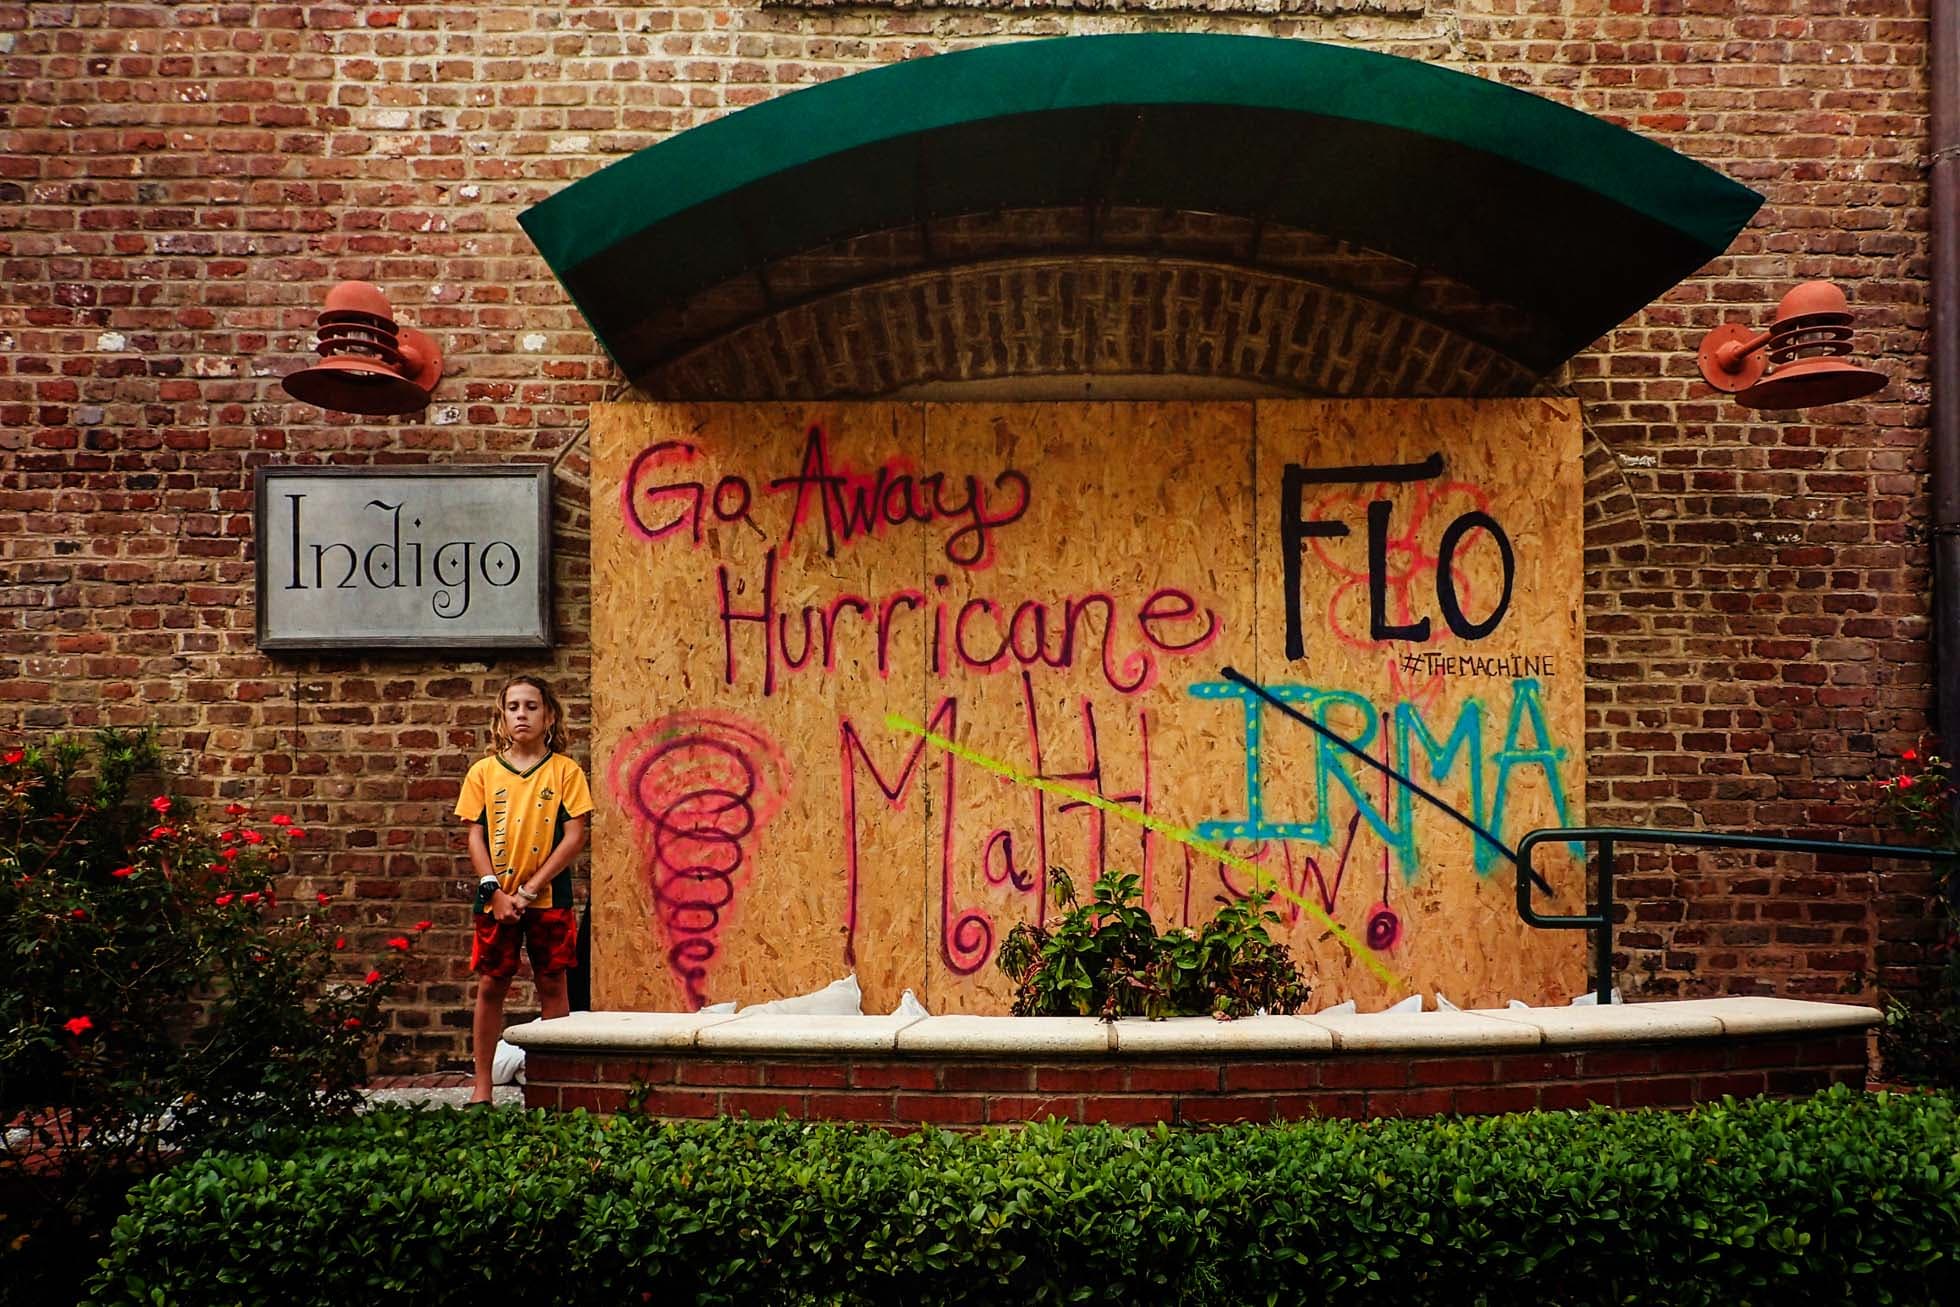 Indigo
Go Away
Hurricane
Matthew!
FLO
#THEMACHINE
IRMA
AUSTRALIA